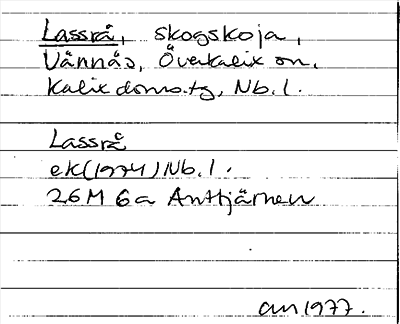 Lassrå, skogskoja,
Vännäs, Överkalix sn,
Kalix doms.tg, Nb.l.
Lassrå
ek(1974)Nb.l.
26M 6a Anttjärnen
an 1977.